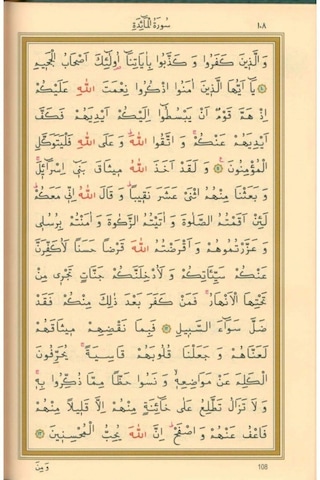 ١٠٨ سُورَةُ الْمَائِدَةِ
وَ الَّذِينَ كَفَرُوا وَ كَذَّبُوا بِاٰيَاتِنَا اُولٰئِكَ اَصْحَابُ الْجَحِيمِ
يَا اَيُّهَا الَّذِينَ اٰمَنُوا اذْكُرُوا نِعْمَتَ اللّٰهِ عَلَيْكُمْ
اِذْ هَمَّ قَوْمٌ اَنْ يَبْسُطُوا اِلَيْكُمْ اَيْدِيَهُمْ فَكَفَّ
اَيْدِيَهُمْ عَنْكُمْ وَ اتَّقُوا اللّٰهَ وَ عَلَى اللّٰهِ فَلْيَتَوَكَّلِ
الْمُؤْمِنُونَ وَ لَقَدْ اَخَذَ اللّٰهُ مِيثَاقَ بَنِي اِسْرَائِلَ
وَ بَعَثْنَا مِنْهُمُ اثْنَيْ عَشَرَ نَقِيبًا وَ قَالَ اللّٰهُ اِنِّي مَعَكُمْ
لَئِنْ اَقَمْتُمُ الصَّلٰوةَ وَ اٰتَيْتُمُ الزَّكٰوةَ وَ اٰمَنْتُمْ بِرُسُلِي
وَ عَزَّرْتُمُوهُمْ وَ اَقْرَضْتُمُ اللّٰهَ قَرْضًا حَسَنًا لَاُكَفِّرَنَّ
عَنْكُمْ سَيِّئَاتِكُمْ وَ لَاُدْخِلَنَّكُمْ جَنَّاتٍ تَجْرِي مِنْ
تَحْتِهَا الْاَنْهَارُ فَمَنْ كَفَرَ بَعْدَ ذٰلِكَ مِنْكُمْ فَقَدْ
ضَلَّ سَوَاءَ السَّبِيلِ فَبِمَا نَقْضِهِمْ مِيثَاقَهُمْ
لَعَنَّاهُمْ وَ جَعَلْنَا قُلُوبَهُمْ قَاسِيَةً يُحَرِّفُونَ
الْكَلِمَ عَنْ مَوَاضِعِهِ وَ نَسُوا حَظًّا مِمَّا ذُكِّرُوا بِهِ
وَ لَا تَزَالُ تَطَّلِعُ عَلٰى خَائِنَةٍ مِنْهُمْ اِلَّا قَلِيلًا مِنْهُمْ
فَاعْفُ عَنْهُمْ وَ اصْفَحْ اِنَّ اللّٰهَ يُحِبُّ الْمُحْسِنِينَ
وَ مِنَ 108